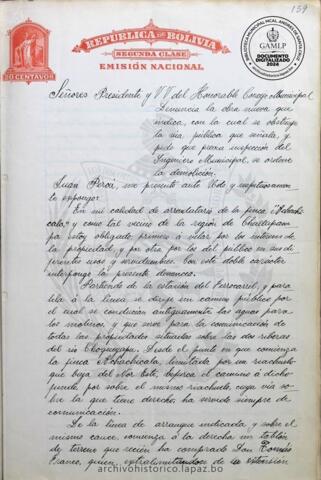 159
REPUBLICA DE BOLIVIA
SEGUNDA CLASE
EMISIÓN NACIONAL
20 CENTAVOS
BIBLIOTECA MUNICIPAL MCAL. ANDRÉS DE SANTA CRUZ
GAMLP
DOCUMENTO
DIGITALIZADO
2024
Señores Presidente y VV del Honorable Concejo Municipal
Denuncia la obra nueva que
indica, con la cual se obstruye
la vía pública que señala, y
pide que previa inspección del
Ingeniero Municipal, se ordene
la demolición.
Juan Perou, me presento ante Uds y respetuosamen
te expongo:
En mi calidad de arrendatario de la finca
cala" y como tal vecino de la región de
pa estoy obligado primero a velar por los intereses de
la propiedad, y por otra, por los del público en sus di
ferentes usos y servidumbres. Con este doble carácter
interpongo la presente denuncia.
Partiendo de la estación del Ferrocarril, y para
lela á la línea se dirije un camino público por
el cual se conducian antiguamente las aguas para
los molinos, y que sirve para la comunicación de
todas las propiedades situadas sobre las dos riberas
del río Choqueyapu. Desde el punto en que comienza
la finca limitada por un riachuelo
que baja del Nor Este, el camino á dicho
punto, por sobre el mismo riachuelo, cuya vía so
bre la que tiene derecho, ha servido siempre de
comunicación.
De la línea de arranque indicada, y sobre el
mismo cauce, comienza á la derecha un tablón
de terreno que recién ha comprado Don Tomás
Franco, quien, extralimitandose de su extensión
archivohistorico.lapaz.bo